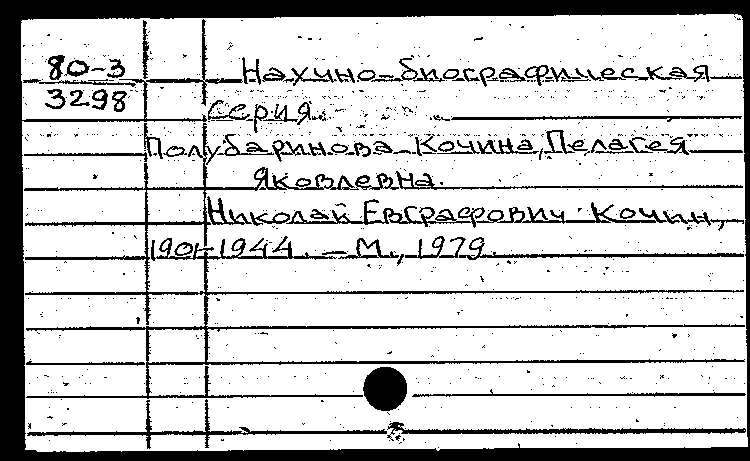 80-3
3298
Научно-биографическая
серия.
Полубаринова-Кочина, Пелагея
Яковлевна.
Николай Евграфович Кочин,
1901-1944. - М., 1979.